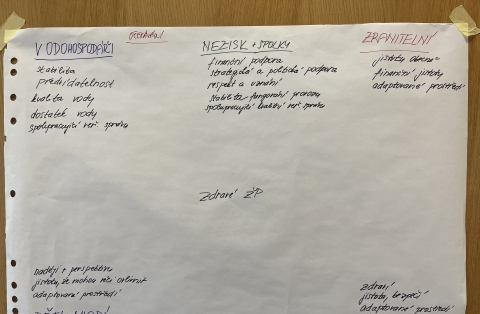 Očekávání
VODOHOSPODÁŘI
stabilita
předvídatelnost
kvalita vody
dostatek vody
spolupracující veř. správa
NEZISK + SPOLKY
finanční podpora
strategická a politická podpora
respekt a uznání
stabilita fungování
spolupracující kvalitní veř. správa
ZRANITELNÍ
jistoty
finanční jistoty
adaptované prostředí
Zdravé ŽP
naději + perspektivu
jistoty, že mohou něco ovlivnit
adaptované prostředí
zdraví
jistoty, bezpečí
adaptované prostředí